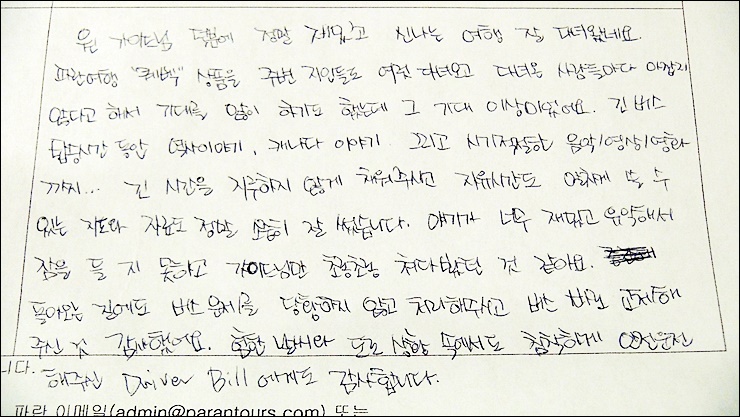 윈 가이드님 덕분에 정말 재밌고 신나는 여행 잘 다녀왔네요.
파란여행 "퀘백" 상품을 주변 지인들도 여럿 다녀오고 다녀온 사람들마다 아깝지
않다고 해서 기대를 많이 하기도 했는데 그 기대 이상이었어요. 긴 버스
탑승시간 동안 역사이야기, 캐나다 이야기 그리고 시기적절한 음악/영상/영화
까지... 긴 시간을 지루하지 않게 채워주시고 자유시간도 알차게 쓸 수
있는 지도와 자료도 정말 요긴히 잘 썼습니다. 얘기가 너무 재밌고 유익해서
잠을 들 지 못하고 가이드님만 초롱초롱 쳐다봤던 것 같아요.
돌아오는 길에도 버스 문제를 당황하지 않고 처리해주시고 버스 바로 교체해
주신 것 감사했어요. 험한 날씨와 도로 상황 속에서도 침착하게 안전운전
니다.
해주신 Driver Bill 에게도 감사합니다.
파란 이메일(admin@parantours.com) 또는